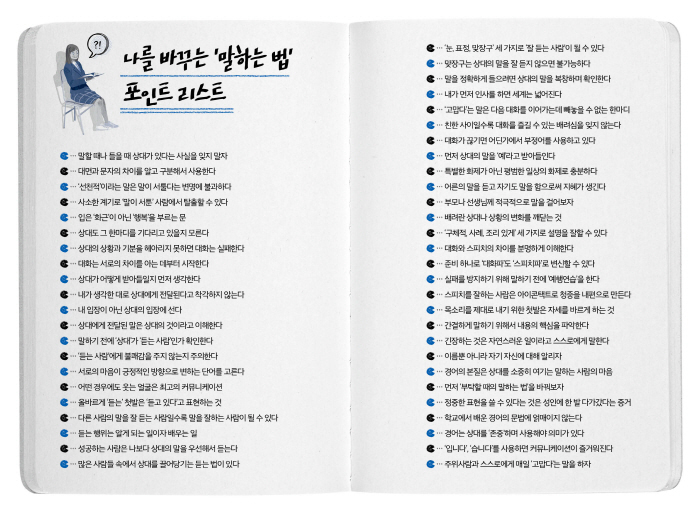 ?!
나를 바꾸는 '말하는 법'
포인트 리스트
··· 말할 때나 들을 때 상대가 있다는 사실을 잊지 말자
··· 대면과 문자의 차이를 알고 구분해서 사용한다
··· '선천적'이라는 말은 말이 서툴다는 변명에 불과하다
··· 사소한 계기로 '말이 서툰' 사람에서 탈출할 수 있다
··· 입은 '화근'이 아닌 '행복'을 부르는 문
··· 상대도 그 한마디를 기다리고 있을지 모른다
··· 상대의 상황과 기분을 헤아리지 못하면 대화는 실패한다
··· 대화는 서로의 차이를 아는 데부터 시작한다
··· 상대가 어떻게 받아들일지 먼저 생각한다
··· 내가 생각한 대로 상대에게 전달된다고 착각하지 않는다
··· 내 입장이 아닌 상대의 입장에 선다
··· 상대에게 전달된 말은 상대의 것이라고 이해한다
··· 말하기 전에 '상대'가 '듣는 사람'인가 확인한다
··· '듣는 사람'에게 불쾌감을 주지 않는지 주의한다
··· 서로의 마음이 긍정적인 방향으로 변하는 단어를 고른다
··· 어떤 경우에도 웃는 얼굴은 최고의 커뮤니케이션
··· 올바르게 '듣는' 첫발은 '듣고 있다'고 표현하는 것
··· 다른 사람의 말을 잘 듣는 사람일수록 말을 잘하는 사람이 될 수 있다
··· 듣는 행위는 알게 되는 일이자 배우는 일
··· 성공하는 사람은 나보다 상대의 말을 우선해서 듣는다
··· 많은 사람들 속에서 상대를 끌어당기는 듣는 법이 있다
··· '눈, 표정, 맞장구' 세 가지로 '잘 듣는 사람'이 될 수 있다
··· 맞장구는 상대의 말을 잘 듣지 않으면 불가능하다
··· 말을 정확하게 들으려면 상대의 말을 복창하며 확인한다
··· 내가 먼저 인사를 하면 세계는 넓어진다
··· '고맙다'는 말은 다음 대화를 이어가는데 빼놓을 수 없는 한마디
··· 친한 사이일수록 대화를 즐길 수 있는 배려심을 잊지 않는다
··· 대화가 끊기면 어딘가에서 부정어를 사용하고 있다
··· 먼저 상대의 말을 '예'라고 받아들인다
··· 특별한 화제가 아닌 평범한 일상의 화제로 충분하다
··· 어른의 말을 듣고 자기도 말을 함으로써 지혜가 생긴다
··· 부모나 선생님께 적극적으로 말을 걸어보자
··· 배려란 상대나 상황의 변화를 깨닫는 것
··· '구체적, 사례, 조리 있게' 세 가지로 설명을 잘할 수 있다
··· 대화와 스피치의 차이를 분명하게 이해한다
··· 준비 하나로 '대화파'도 '스피치파'로 변신할 수 있다
··· 실패를 방지하기 위해 말하기 전에 '예행연습'을 한다
··· 스피치를 잘하는 사람은 아이콘택트로 청중을 내편으로 만든다
··· 목소리를 제대로 내기 위한 첫발은 자세를 바르게 하는 것
··· 간결하게 말하기 위해서 내용의 핵심을 파악한다
··· 긴장하는 것은 자연스러운 일이라고 스스로에게 말한다
··· 이름뿐 아니라 자기 자신에 대해 알리자
··· 경어의 본질은 상대를 소중히 여기는 말하는 사람의 마음
··· 먼저 '부탁할 때의 말하는 법'을 바꿔보자
··· 정중한 표현을 쓸 수 있다는 것은 성인에 한 발 다가갔다는 증거
··· 학교에서 배운 경어의 문법에 얽매이지 않는다
··· 경어는 상대를 '존중'하며 사용해야 의미가 있다
··· '입니다', '습니다'를 사용하면 커뮤니케이션이 즐거워진다
··· 주위사람과 스스로에게 매일 '고맙다'는 말을 하자